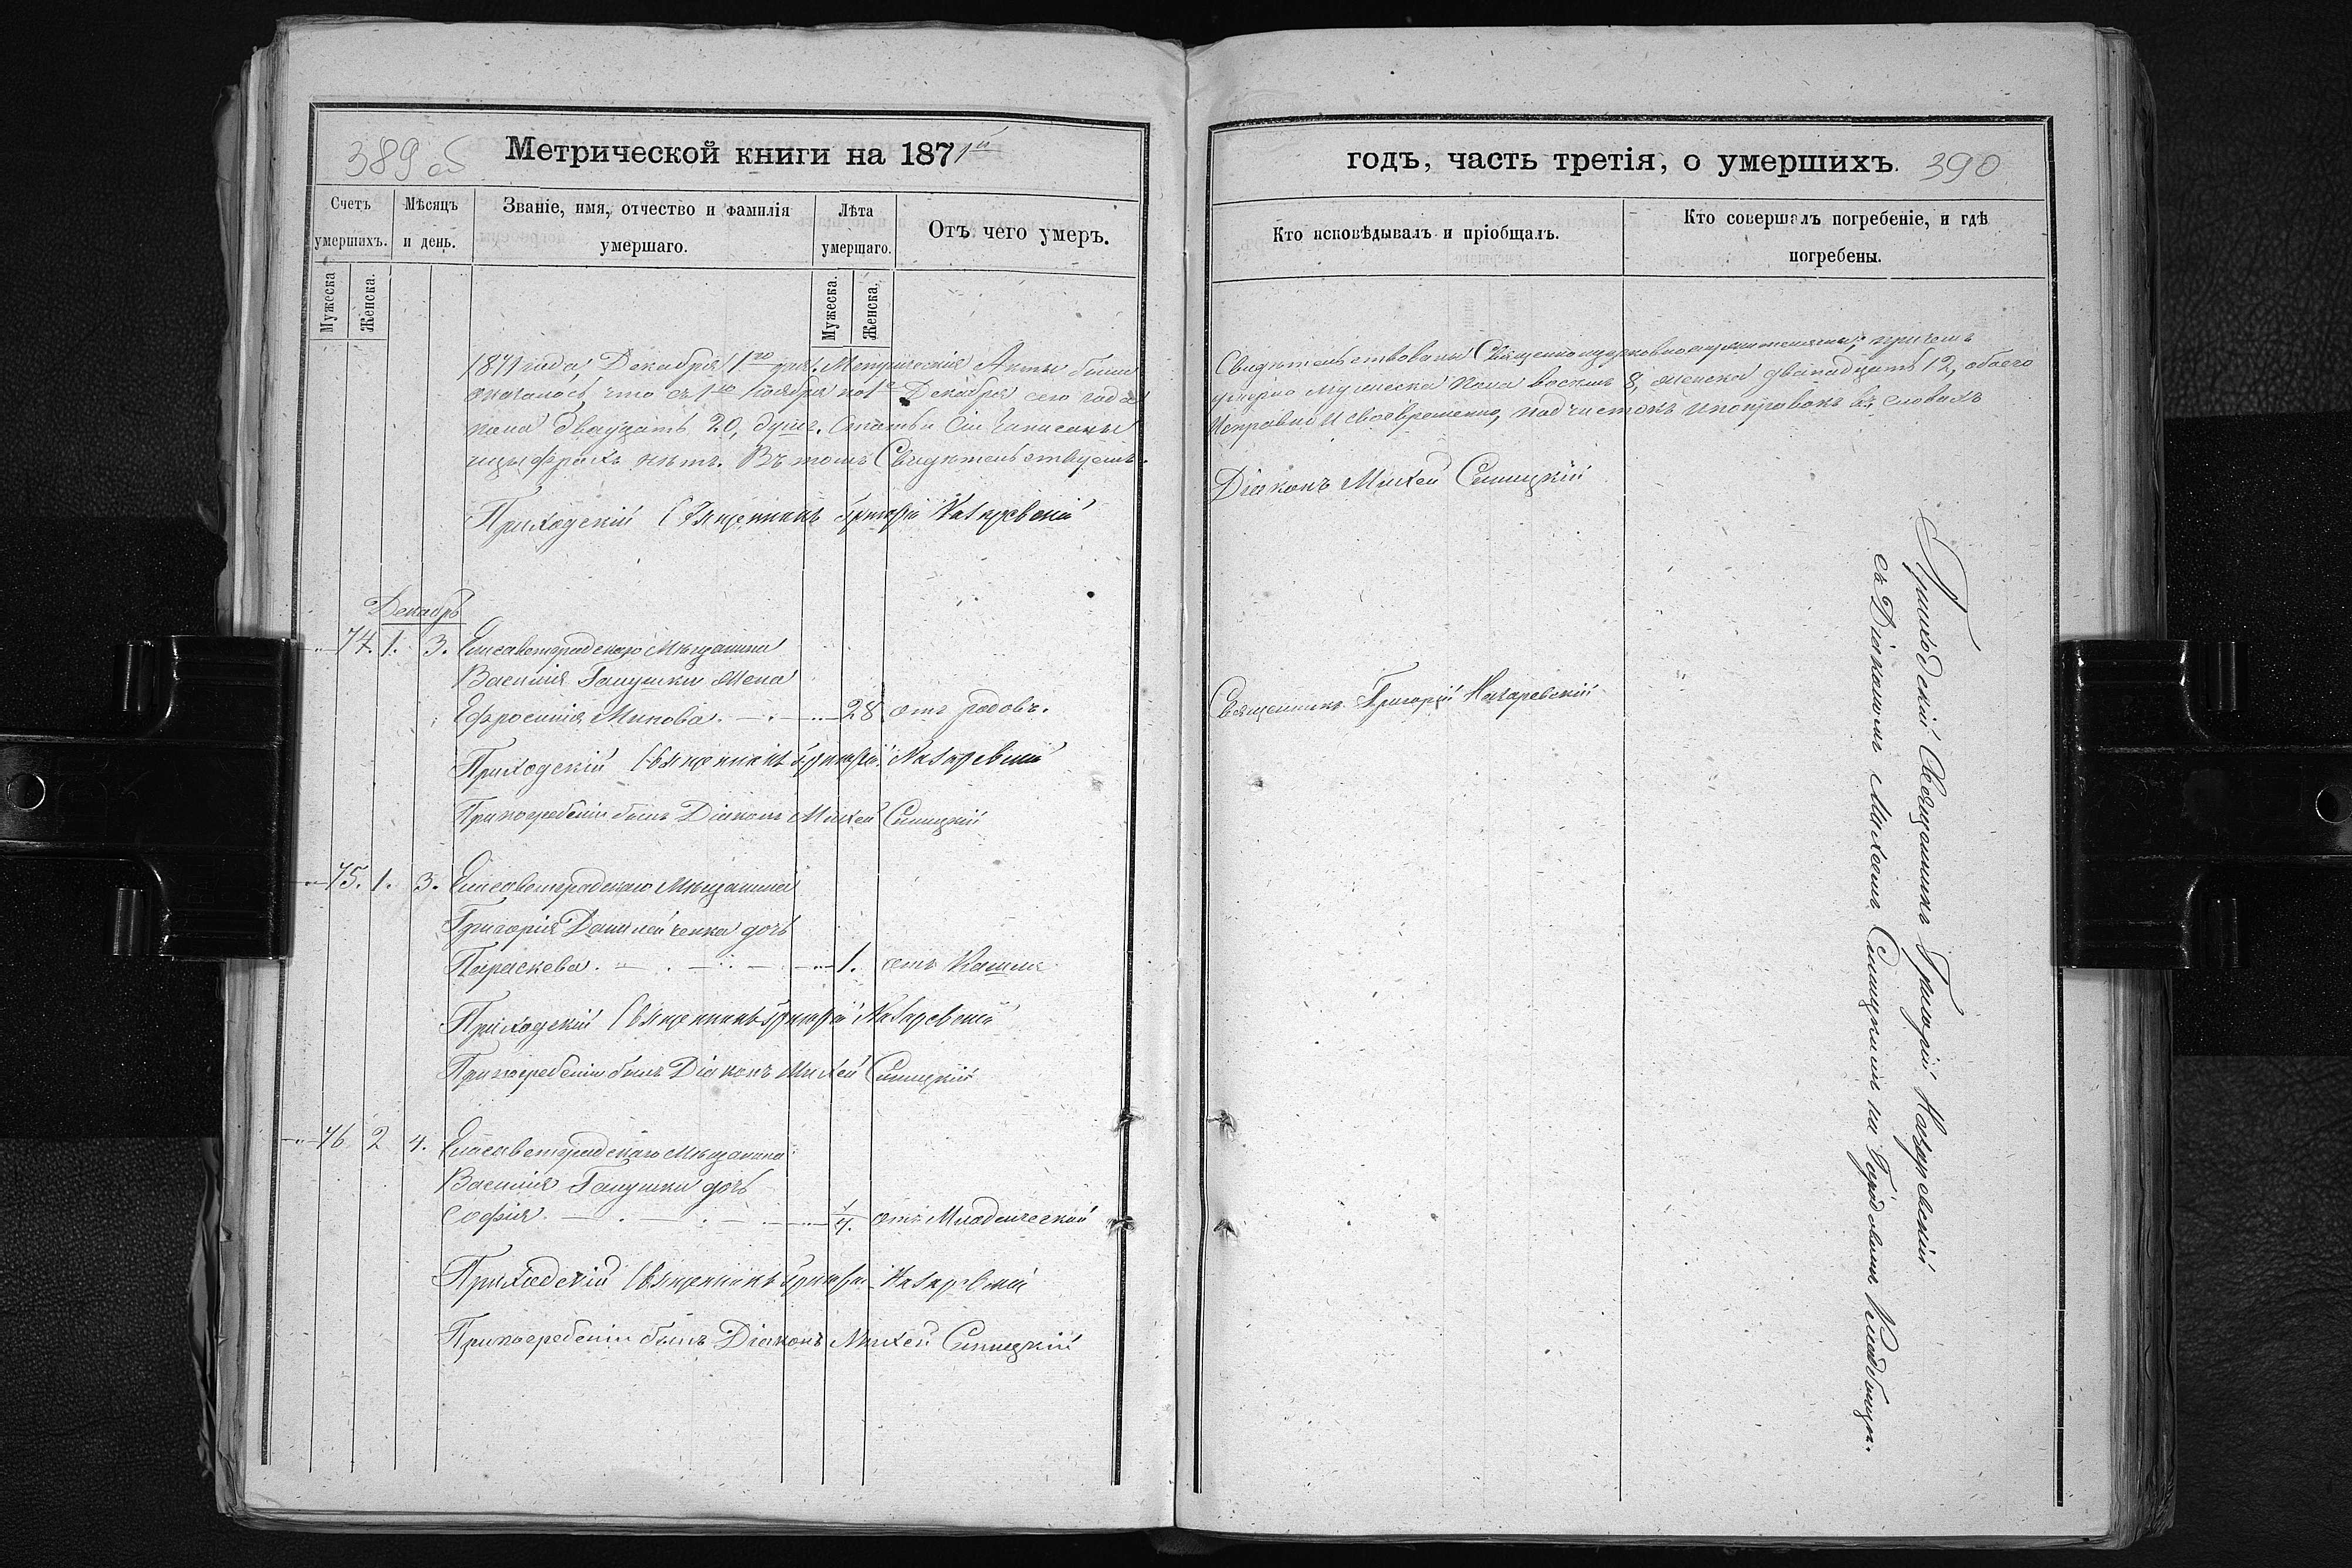 389 об
Метрической книги на 1871й
Счетъ умершихъ.
Мѣсяцъ и день.
Званіе, имя, отчество и фамилія умершаго.
Лѣта умершаго.
Отъ чего умеръ.
Мужеска
Женска.
Мужеска.
Женска.
1871 года, Декабря 1го дня. Метрическія Акты были
оказалось, что съ 1го Ноября по 1е Декабря сего года
пола двадцать 20, душъ. Статьи сіи записаны
цыфрахъ нѣтъ. Въ томъ Свидѣтельствуемъ.
Приходскій Священникъ Григорій Назаревскій
Декабрь
74. 1. 3. Елисаветградскаго Мѣщанина
Василія Галушки жена
Ефросинія Минова. 28 отъ родовъ.
Приходскій Священникъ Григорій Назаревскій
При погребеніи былъ Діаконъ Михей Синицкій
75. 1. 3. Елисаветградскаго Мѣщанина
Григорія Данилейченка дочь
Параскева. 1. отъ Кашля
Приходскій Священникъ Григорій Назаревскій
При погребеніи былъ Діаконъ Михей Синицкій
76 2 4. Елисаветградскаго Мѣщанина
Василія Галушки дочь
Софія. 1/4. отъ Младенческой
Приходскій Священникъ Григорій Назаревскій
При погребеніи былъ Діаконъ Михей Синицкій
годъ, часть третія, о умершихъ. 390
Кто исповѣдывалъ и пріобщалъ.
Кто совершалъ погребеніе, и гдѣ погребены.
Свидѣтельствованы Священноцерковнослужителями; причемъ
умерло мужеска пола восемь 8, женска двенадцать 12, обоего
исправно и своевременно, подчистокъ и поправокъ въ словахъ
Діаконъ Михей Синицкій
Священникъ Григорій Назаревскій
Приходскій Священникъ Григорій Назаревскій
съ Діакономъ Михеемъ Синицкимъ на Кладбищѣ.